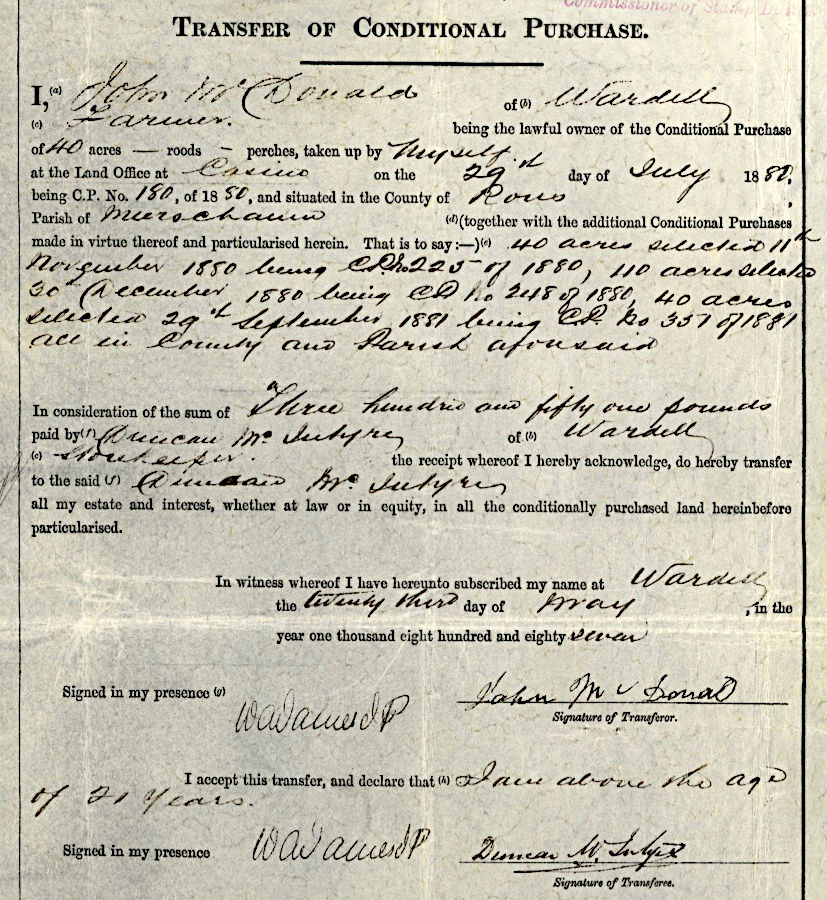 Commissioner of Stamp
TRANSFER OF CONDITIONAL PURCHASE.
I, (a) John McDonald of (b) Wardell
(c) Farmer. being the lawful owner of the Conditional Purchase
of 40 acres — roods – perches, taken up by Myself
at the Land Office at Casino on the 29th day of July 1880,
being C.P. No. 180, of 1880, and situated in the County of Rous,
Parish of Meerschaum (d) (together with the additional Conditional Purchases
made in virtue thereof and particularised herein. That is to say:—) (e) 40 acres selected 11th
November 1880 being C.P. No 225 of 1880, 40 acres selected
30th December 1880 being C.P. No 248 of 1880, 40 acres
selected 29th September 1881 being C.P. No 337 of 1881
all in County and Parish aforesaid
In consideration of the sum of Three hundred and fifty one pounds
paid by (f) Duncan McIntyre of (b) Wardell
(c) Storekeeper. the receipt whereof I hereby acknowledge, do hereby transfer
to the said (f) Duncan McIntyre
all my estate and interest, whether at law or in equity, in all the conditionally purchased land hereinbefore
particularised.
In witness whereof I have hereunto subscribed my name at Wardell
the twenty third day of May, in the
year one thousand eight hundred and eighty seven
Signed in my presence (g) John McDonald
Signature of Transferor.
I accept this transfer, and declare that (h) I am above the age
of 21 Years.
Signed in my presence Duncan McIntyre
Signature of Transferee.